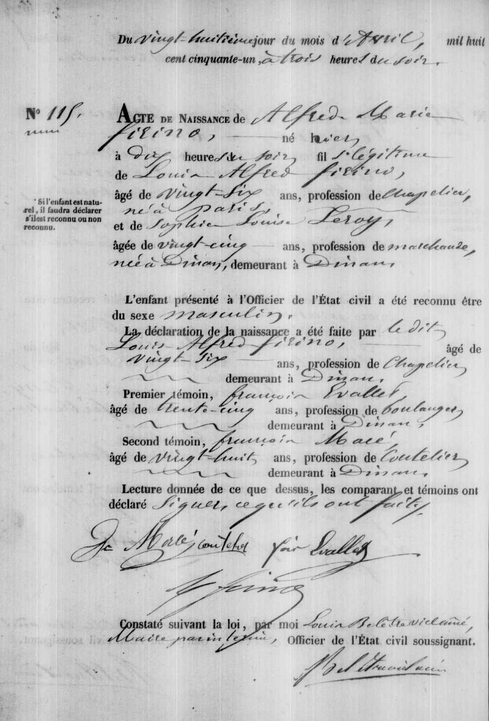 Du vingt-huitième jour du mois d'Avril, mil huit
cent cinquante-un, à trois heures du soir.
N° 115.
ACTE DE NAISSANCE de Alfred Marie
né hier
à dix heures du soir fils légitime
de Louis Alfred
* Si l'enfant est naturel, il faudra déclarer s'il est reconnu ou non reconnu.
âgé de vingt-six ans, profession de chapelier,
né à Paris,
et de Sophie Louise Leroy,
âgée de vingt-cinq ans, profession de marchande,
née à Dinan, demeurant à Dinan,
L'enfant présenté à l'Officier de l'État civil a été reconnu être
du sexe masculin.
La déclaration de la naissance a été faite par le dit
Louis Alfred âgé de
vingt-six ans, profession de chapelier
demeurant à Dinan,
Premier témoin, françois Evallet,
âgé de trente-cinq ans, profession de boulanger
demeurant à Dinan,
Second témoin, françois Macé,
âgé de vingt-huit ans, profession de Coutelier
demeurant à Dinan,
Lecture donnée de ce que dessus, les comparant et témoins ont
déclaré signer, ce qu'ils ont fait,
Macé
Evallet
Constaté suivant la loi, par moi Louis
Maire Officier de l'État civil soussignant.